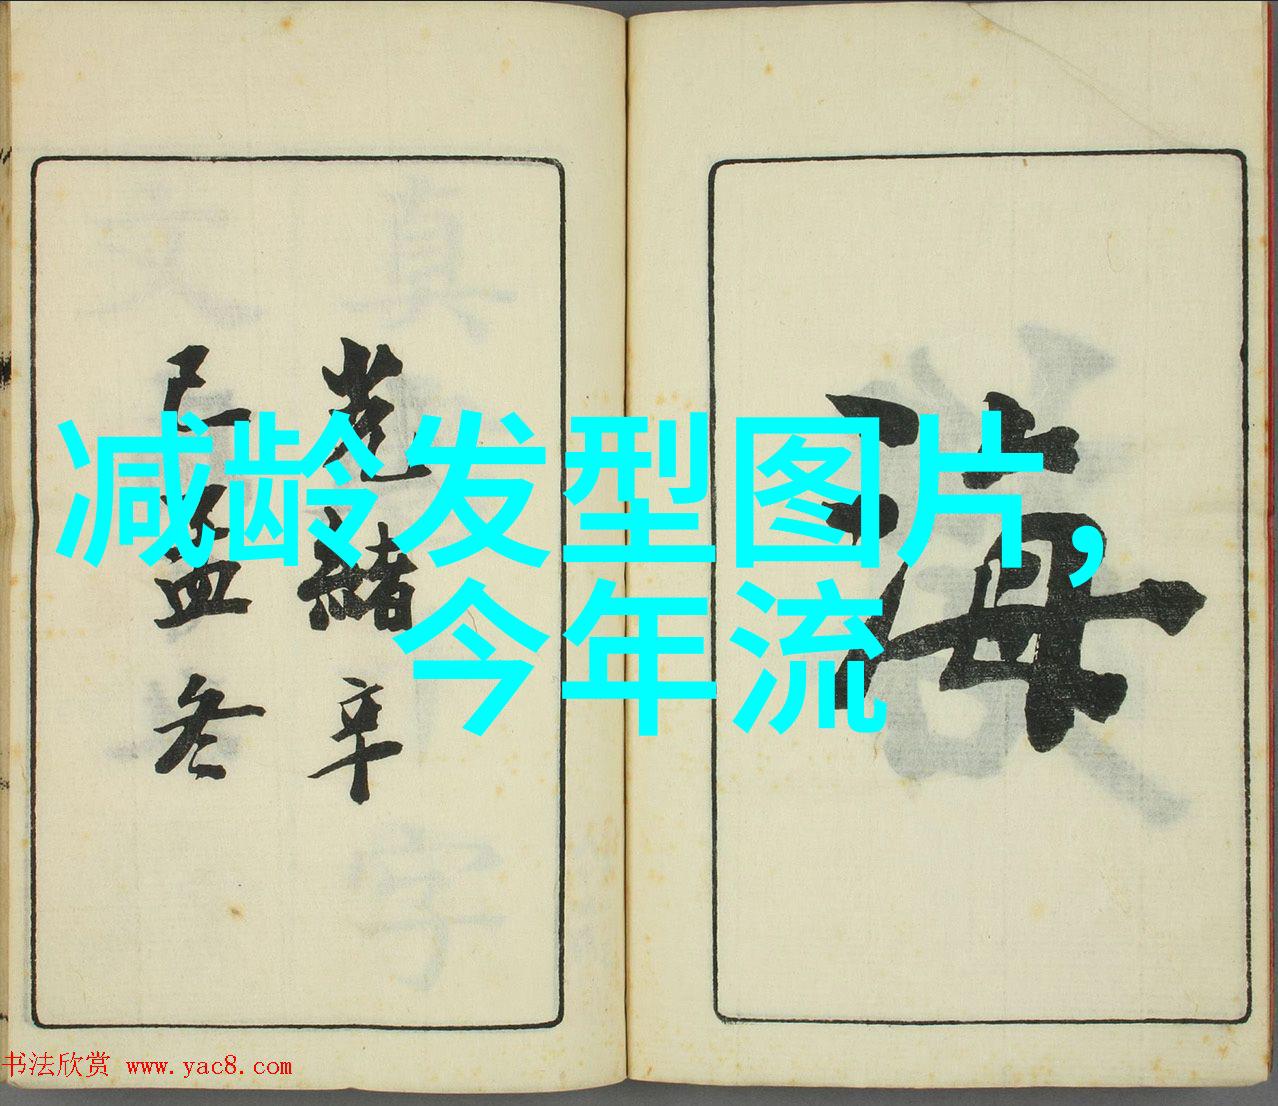 海
光緒辛
巳孟冬
减龄发型图片,
今年流
书法欣赏 www.yac8.com